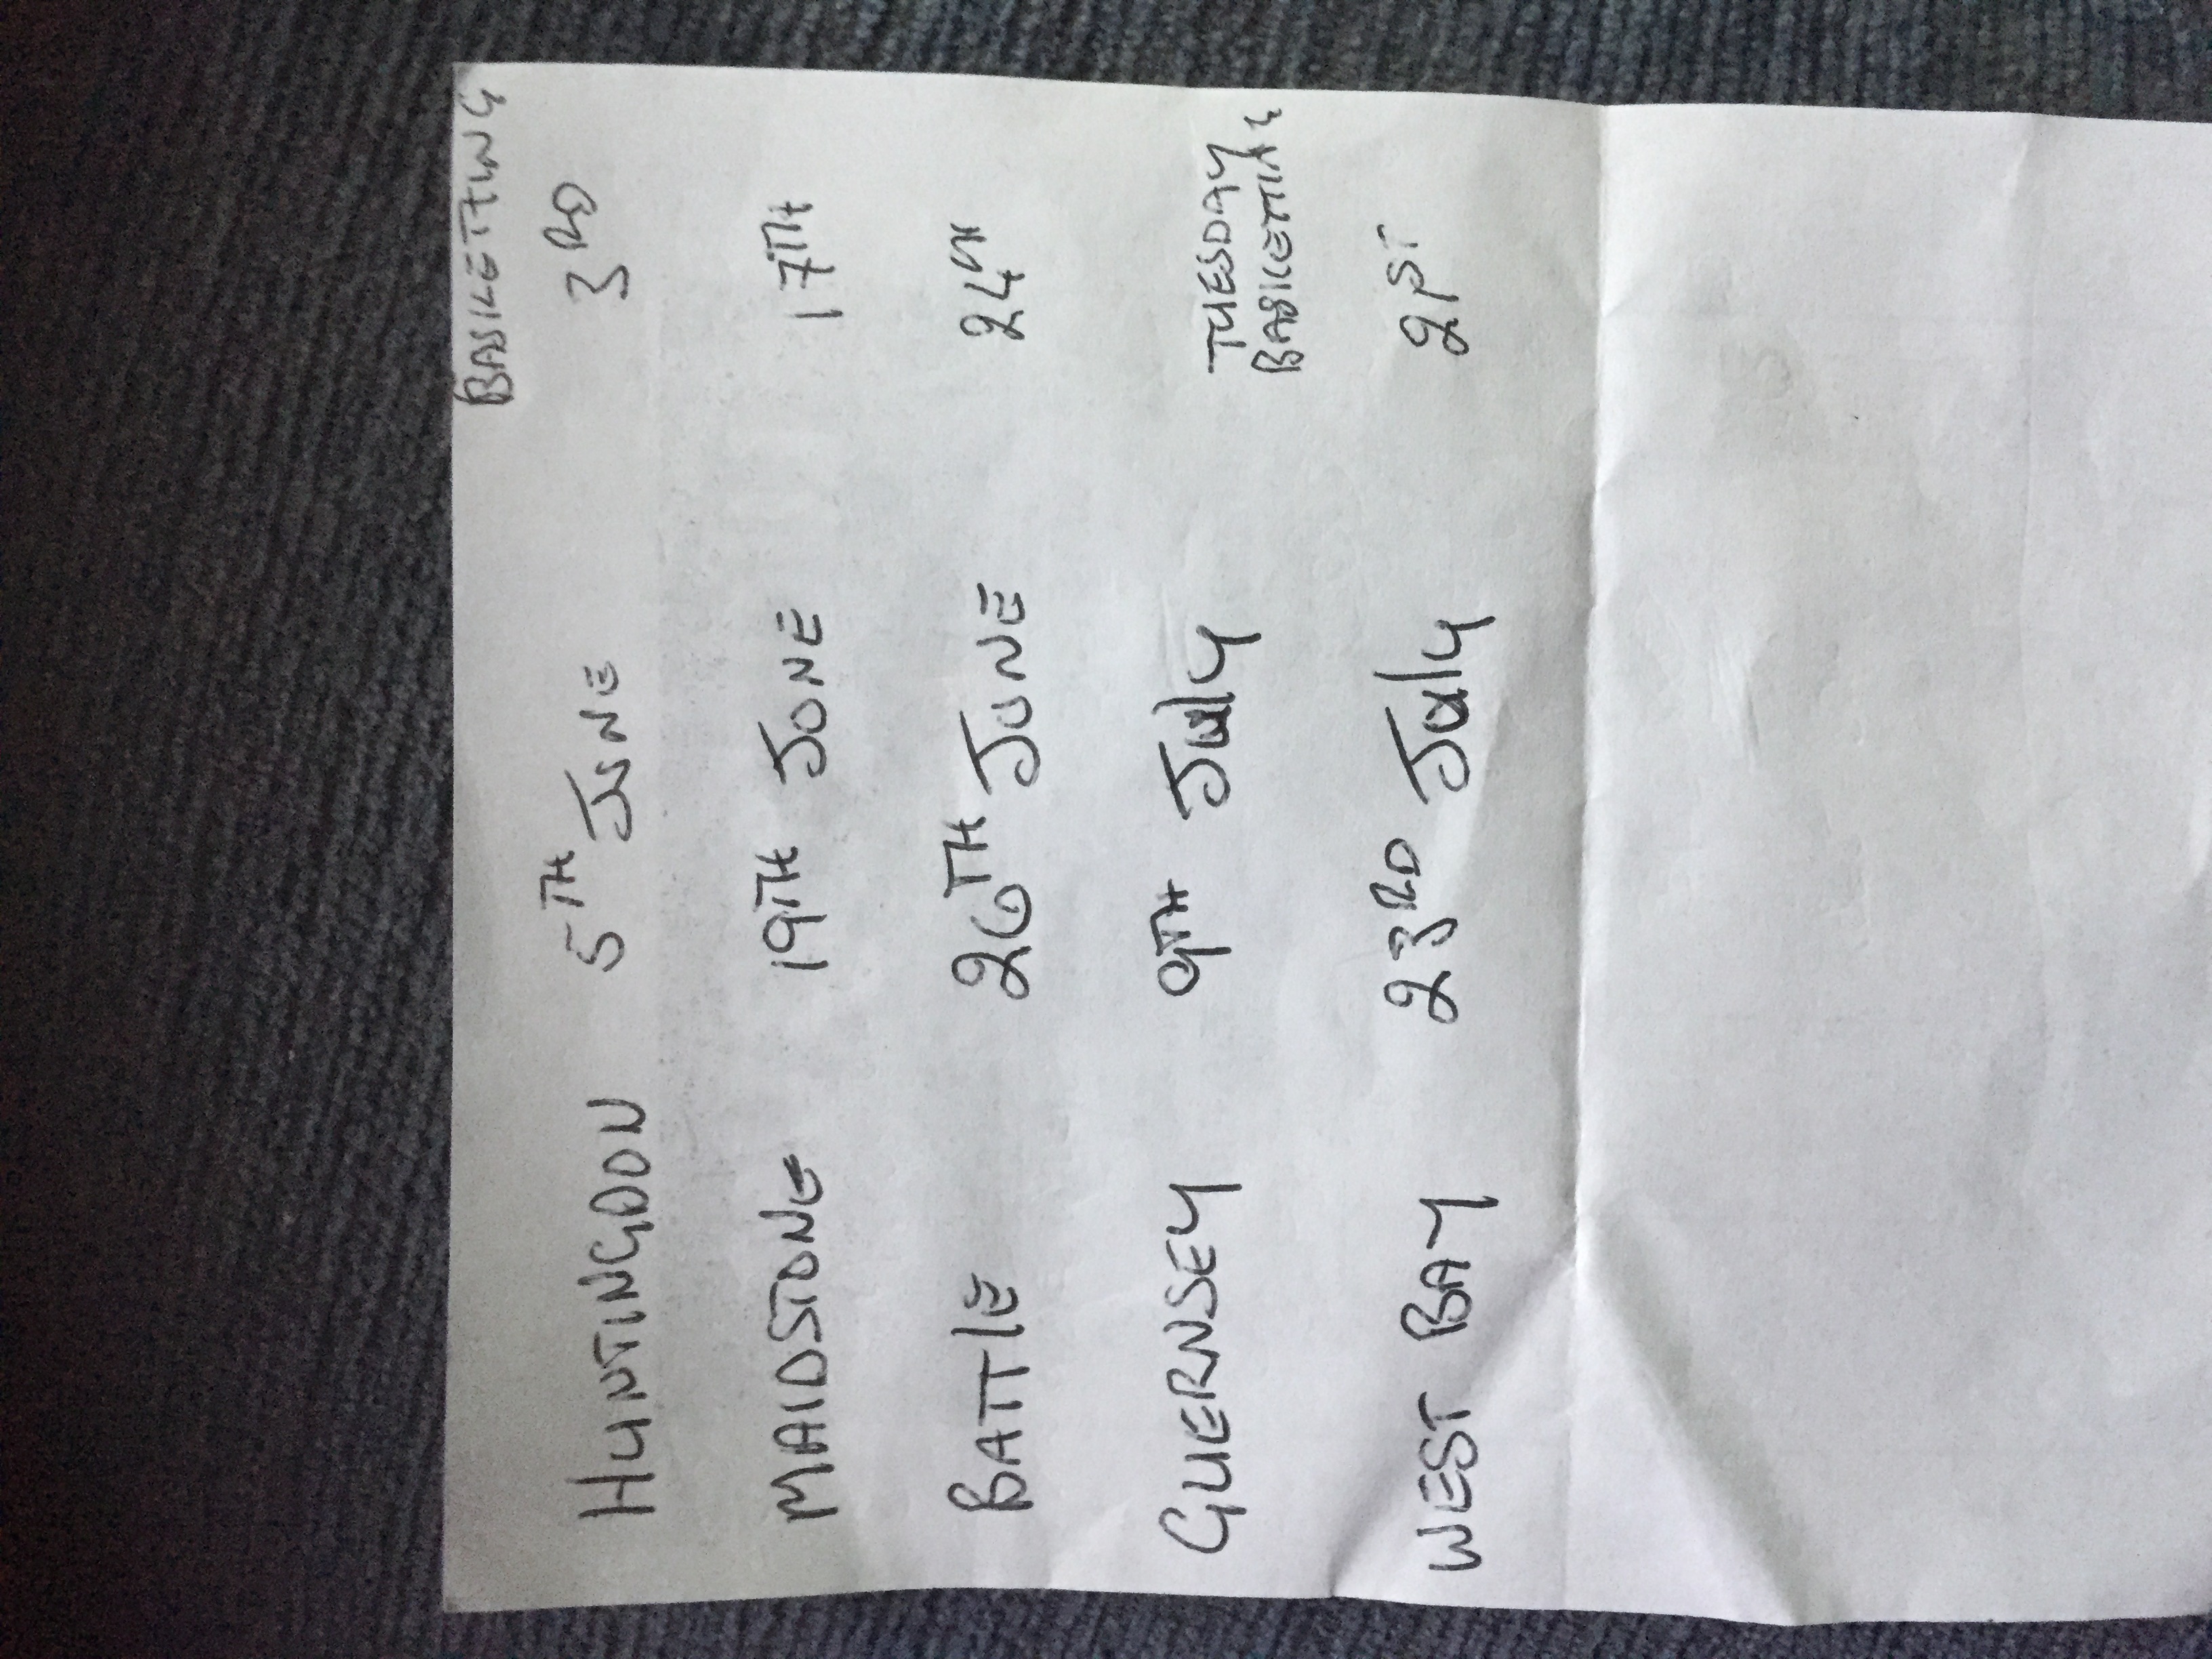 BASKETTING
HUNTINGDON 5TH JUNE 3RD
MAIDSTONE 19TH JUNE 17TH
BATTlE 26TH JUNE 24TH
GUERNSEY 9TH July TUESDAY
BASKETTING
WEST BAY 23RD July 21ST